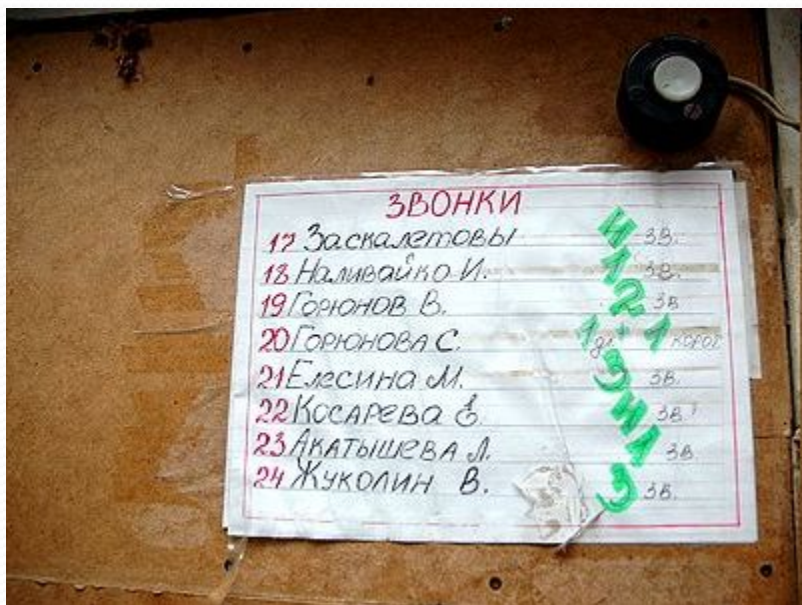 ЗВОНКИ
17 Заскалетовы зв.
18 Наливайко И. зв.
19 Горюнов В. зв
20 Горюнова С. 1 дл. 1 корот
21 Елесина М. зв.
22 Косарева Е. зв.
23 Акатышева Л. зв
24 Жуколин В. зв.